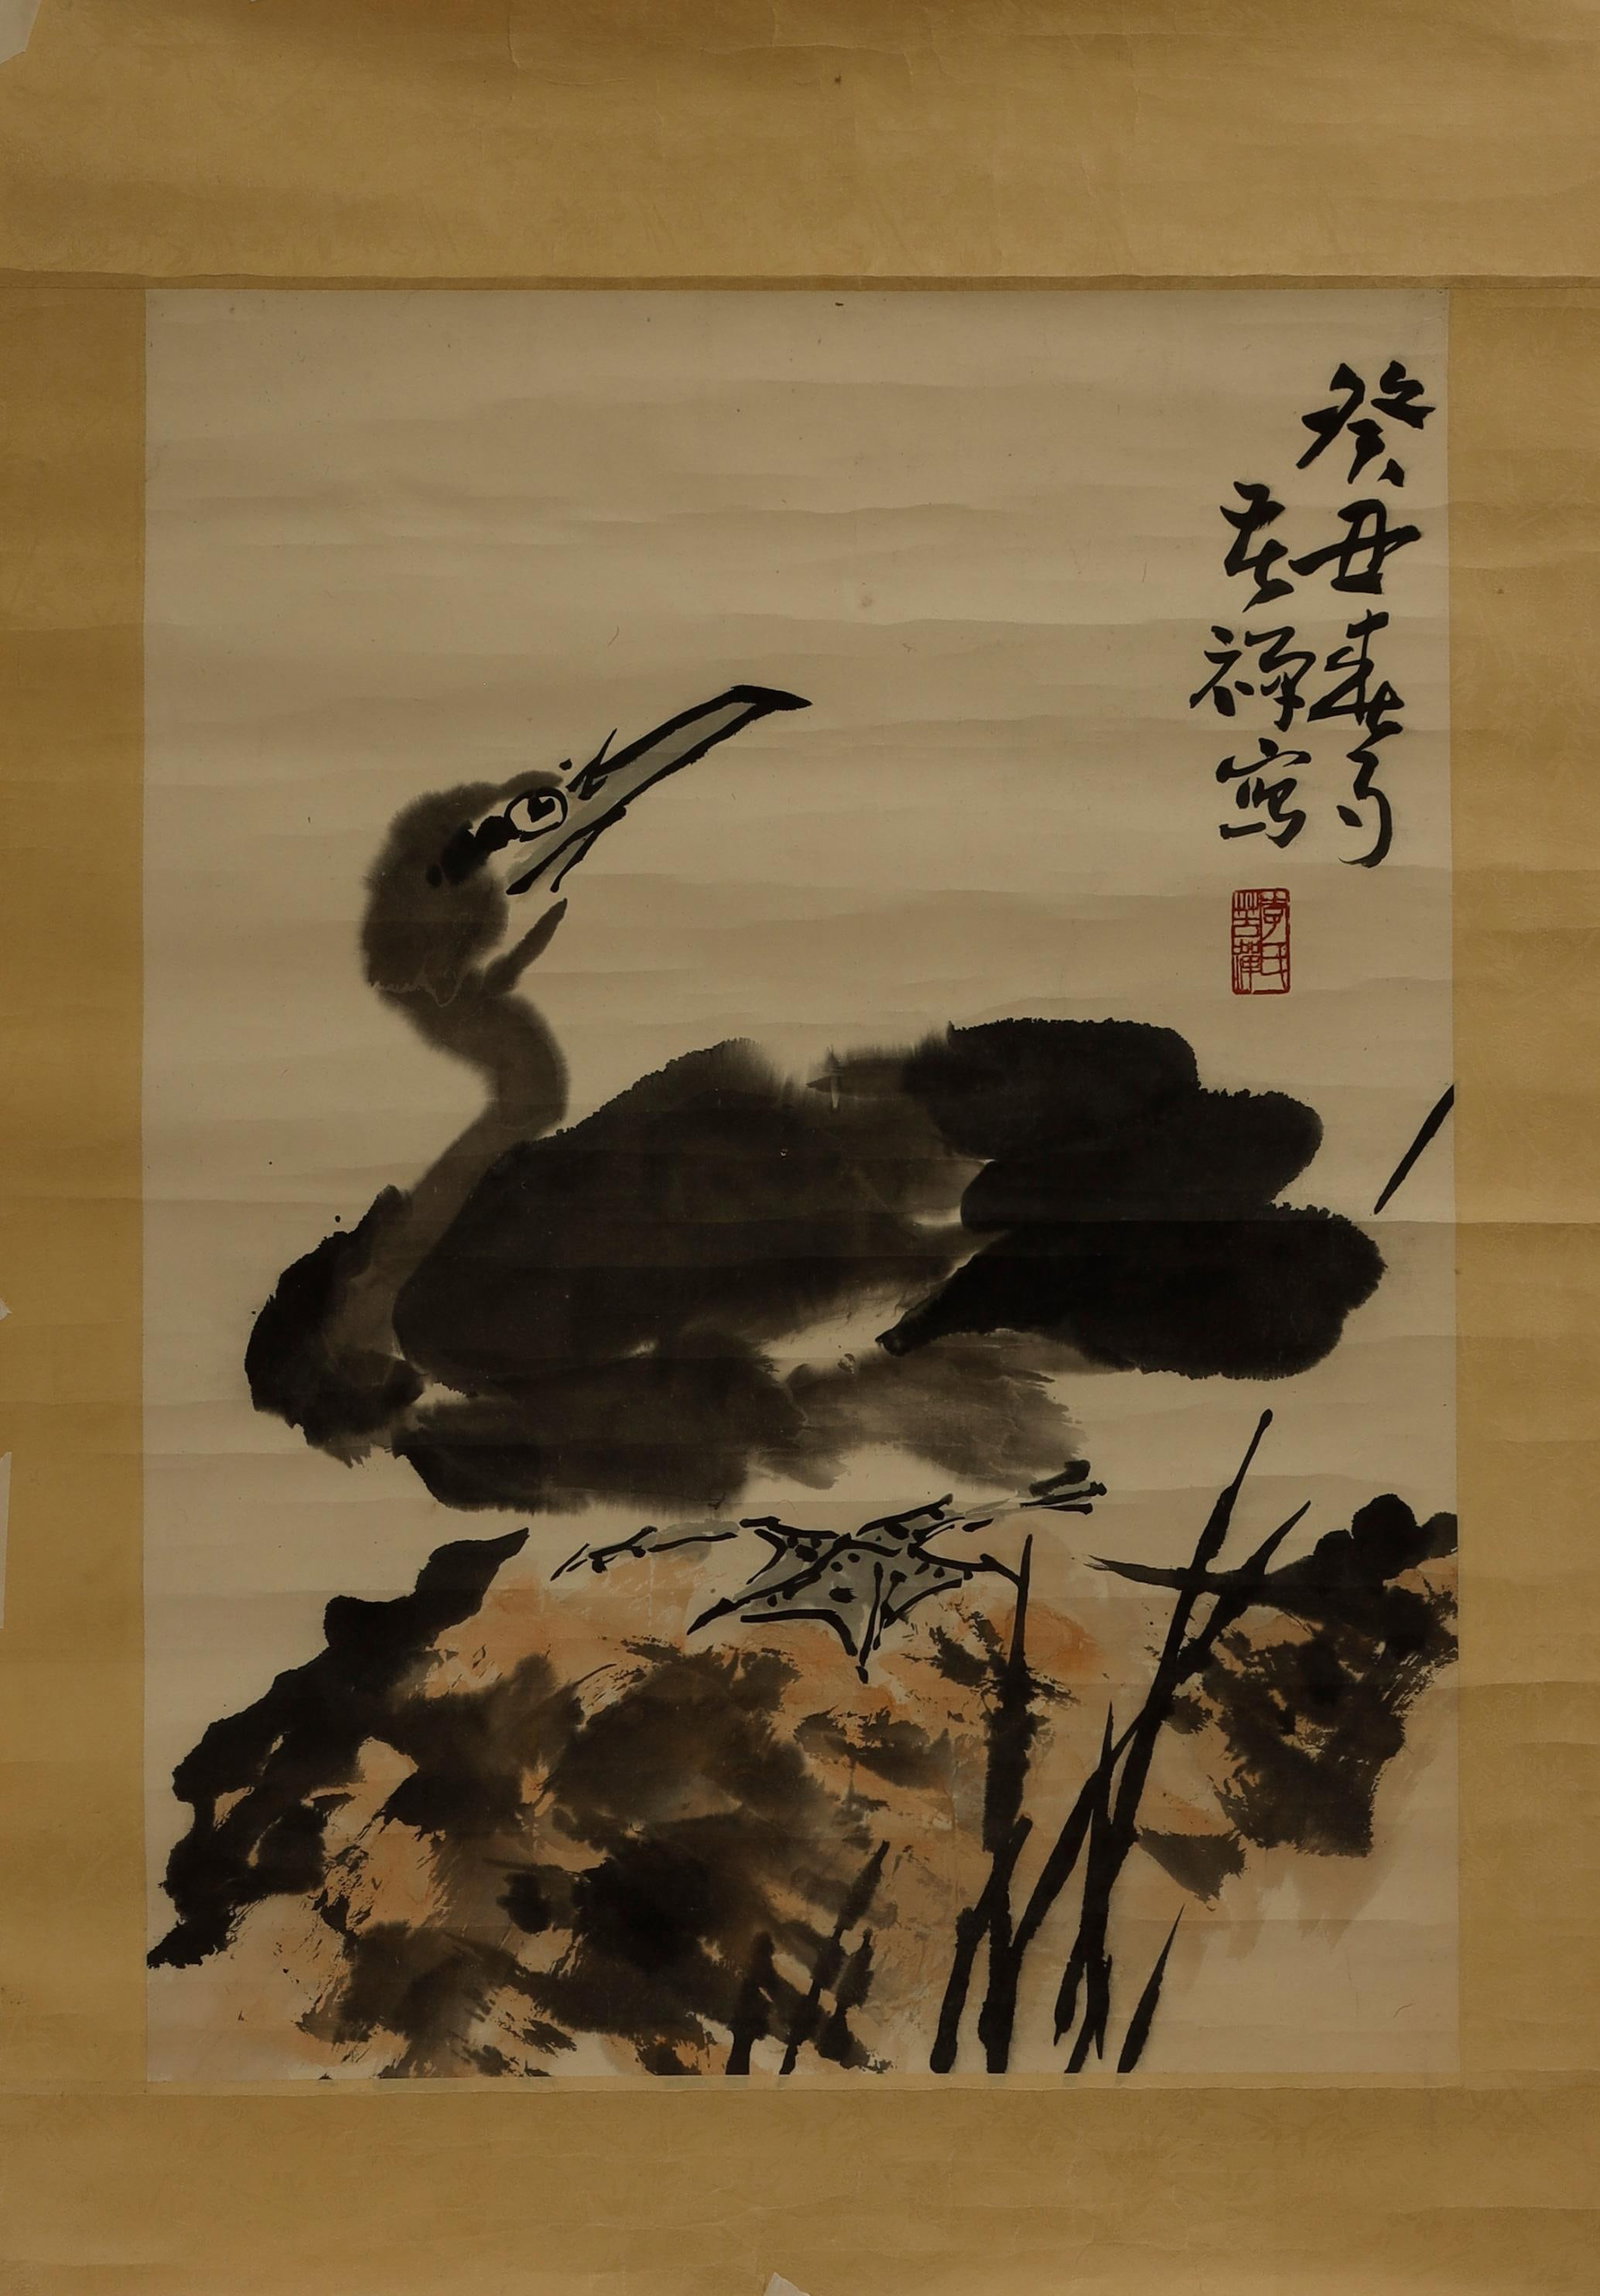 癸丑春月
苦禪寫
李氏苦禪